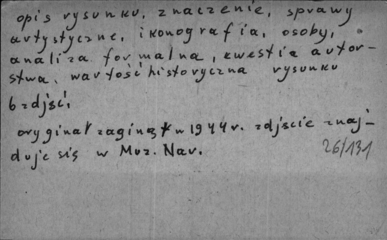 opis rysunku, znaczenie, sprawy
artystyczne, ikonografia, osoby,
analiza formalna, kwestia autor-
stwa, wartość historyczna rysunku
6 zdjść,
oryginał zaginął w 1944 r. zdjście znaj-
duje się w Muz. Nar.
26/131